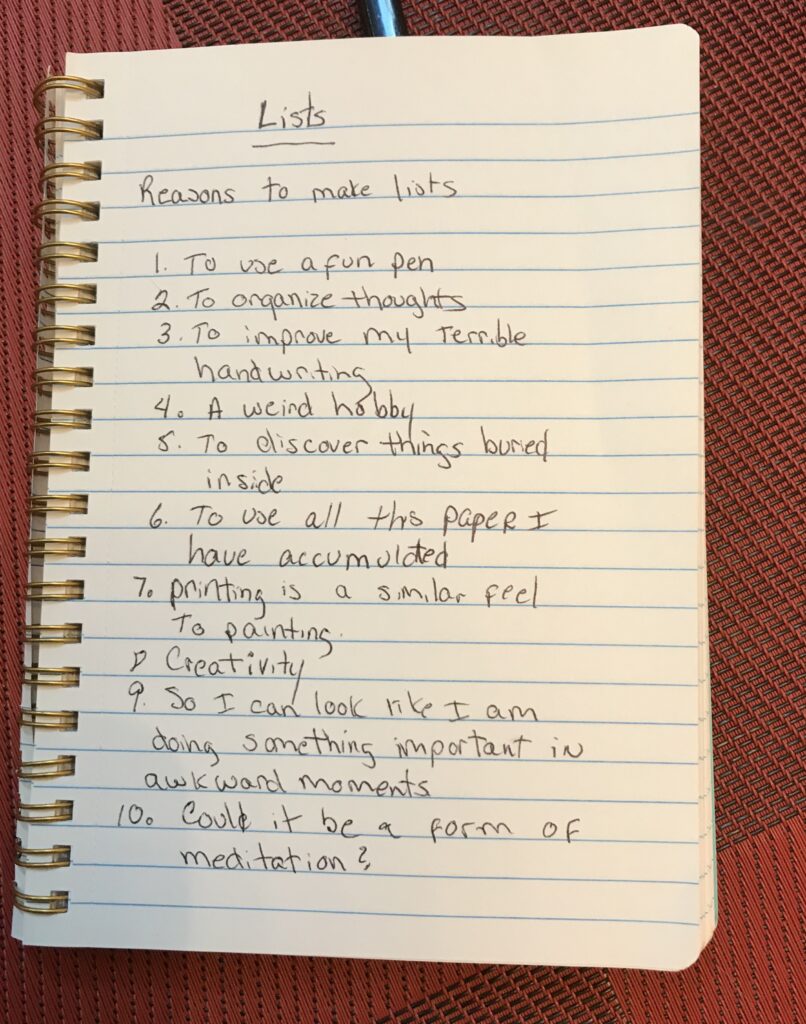 Lists
Reasons to make lists
1. To use a fun pen
2. To organize thoughts
3. To improve my terrible
handwriting
4. A weird hobby
5. To discover things buried
inside
6. To use all this paper I
have accumulated
7. printing is a similar feel
To painting.
8 Creativity
9. So I can look like I am
doing something important in
awkward moments
10. Could it be a form of
meditation?